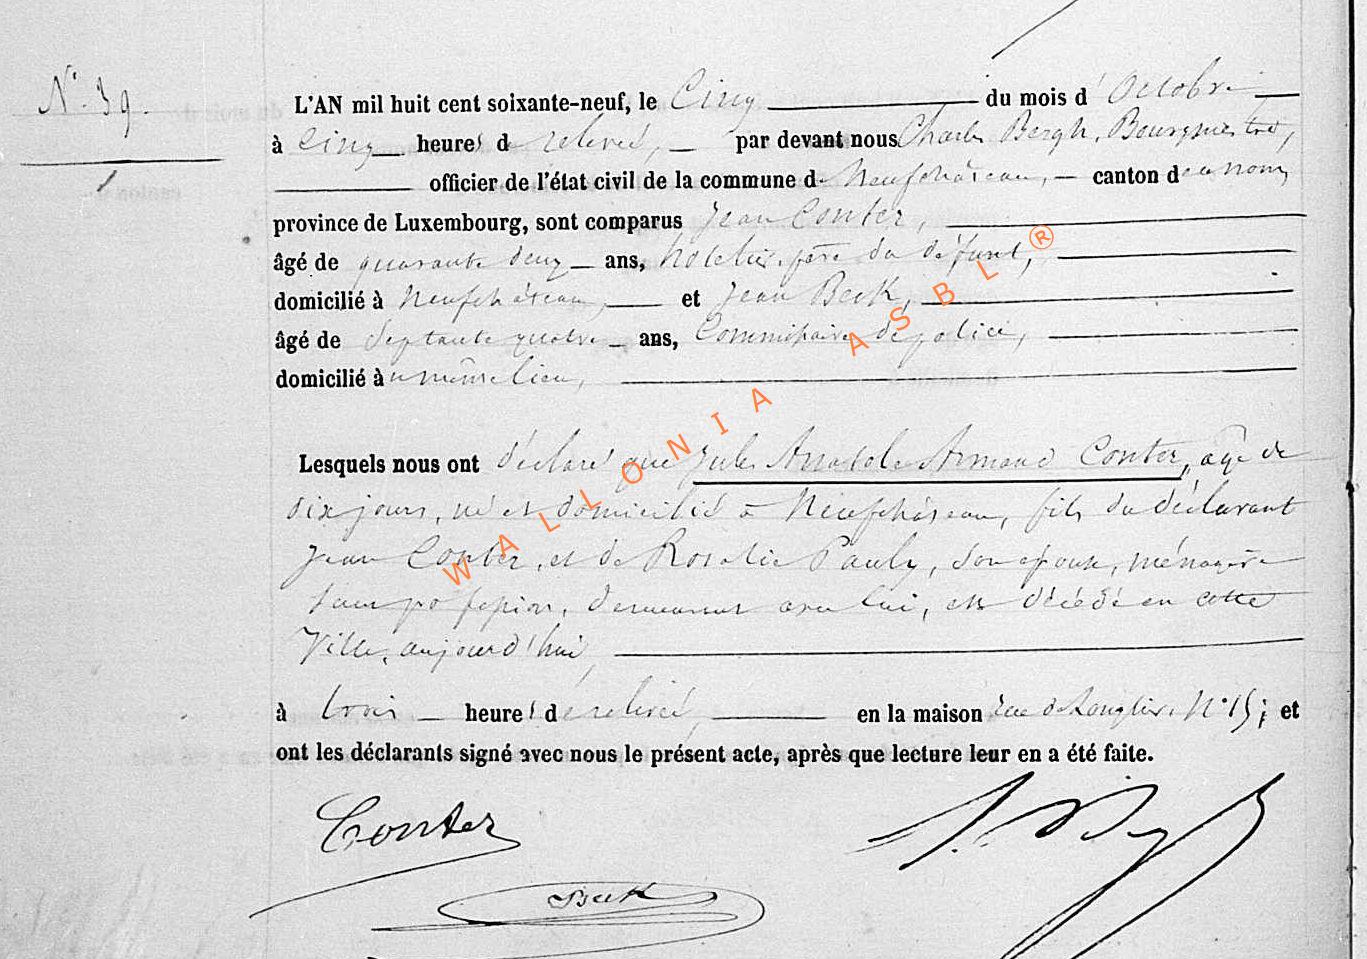 N° 39.
L'AN mil huit cent soixante-neuf, le Cinq du mois d'Octobre
à Cinq heures de relevée, par devant nous Charles Bergh, Bourgmestre,
officier de l'état civil de la commune de Neufchâteau, canton du nom,
province de Luxembourg, sont comparus Jean Conter,
âgé de quarante deux ans, hôtelier, père du défunt,
domicilié à Neufchâteau, et Jean Beck,
âgé de Septante quatre ans, Commissaire de police,
domicilié au même lieu,
Lesquels nous ont déclaré que Jules Anatole Armand Conter, âgé de
dix jours, né et domicilié à Neufchâteau, fils du déclarant
Jean Conter, et de Rosalie Pauly, son épouse, ménagère
sans profession, demeurant avec lui, est décédé en cette
Ville, aujourd'hui,
à trois heures de relevée, en la maison rue de Longlier, N° 15; et
ont les déclarants signé avec nous le présent acte, après que lecture leur en a été faite.
Conter
Beck
WALLONIA ASBL ®